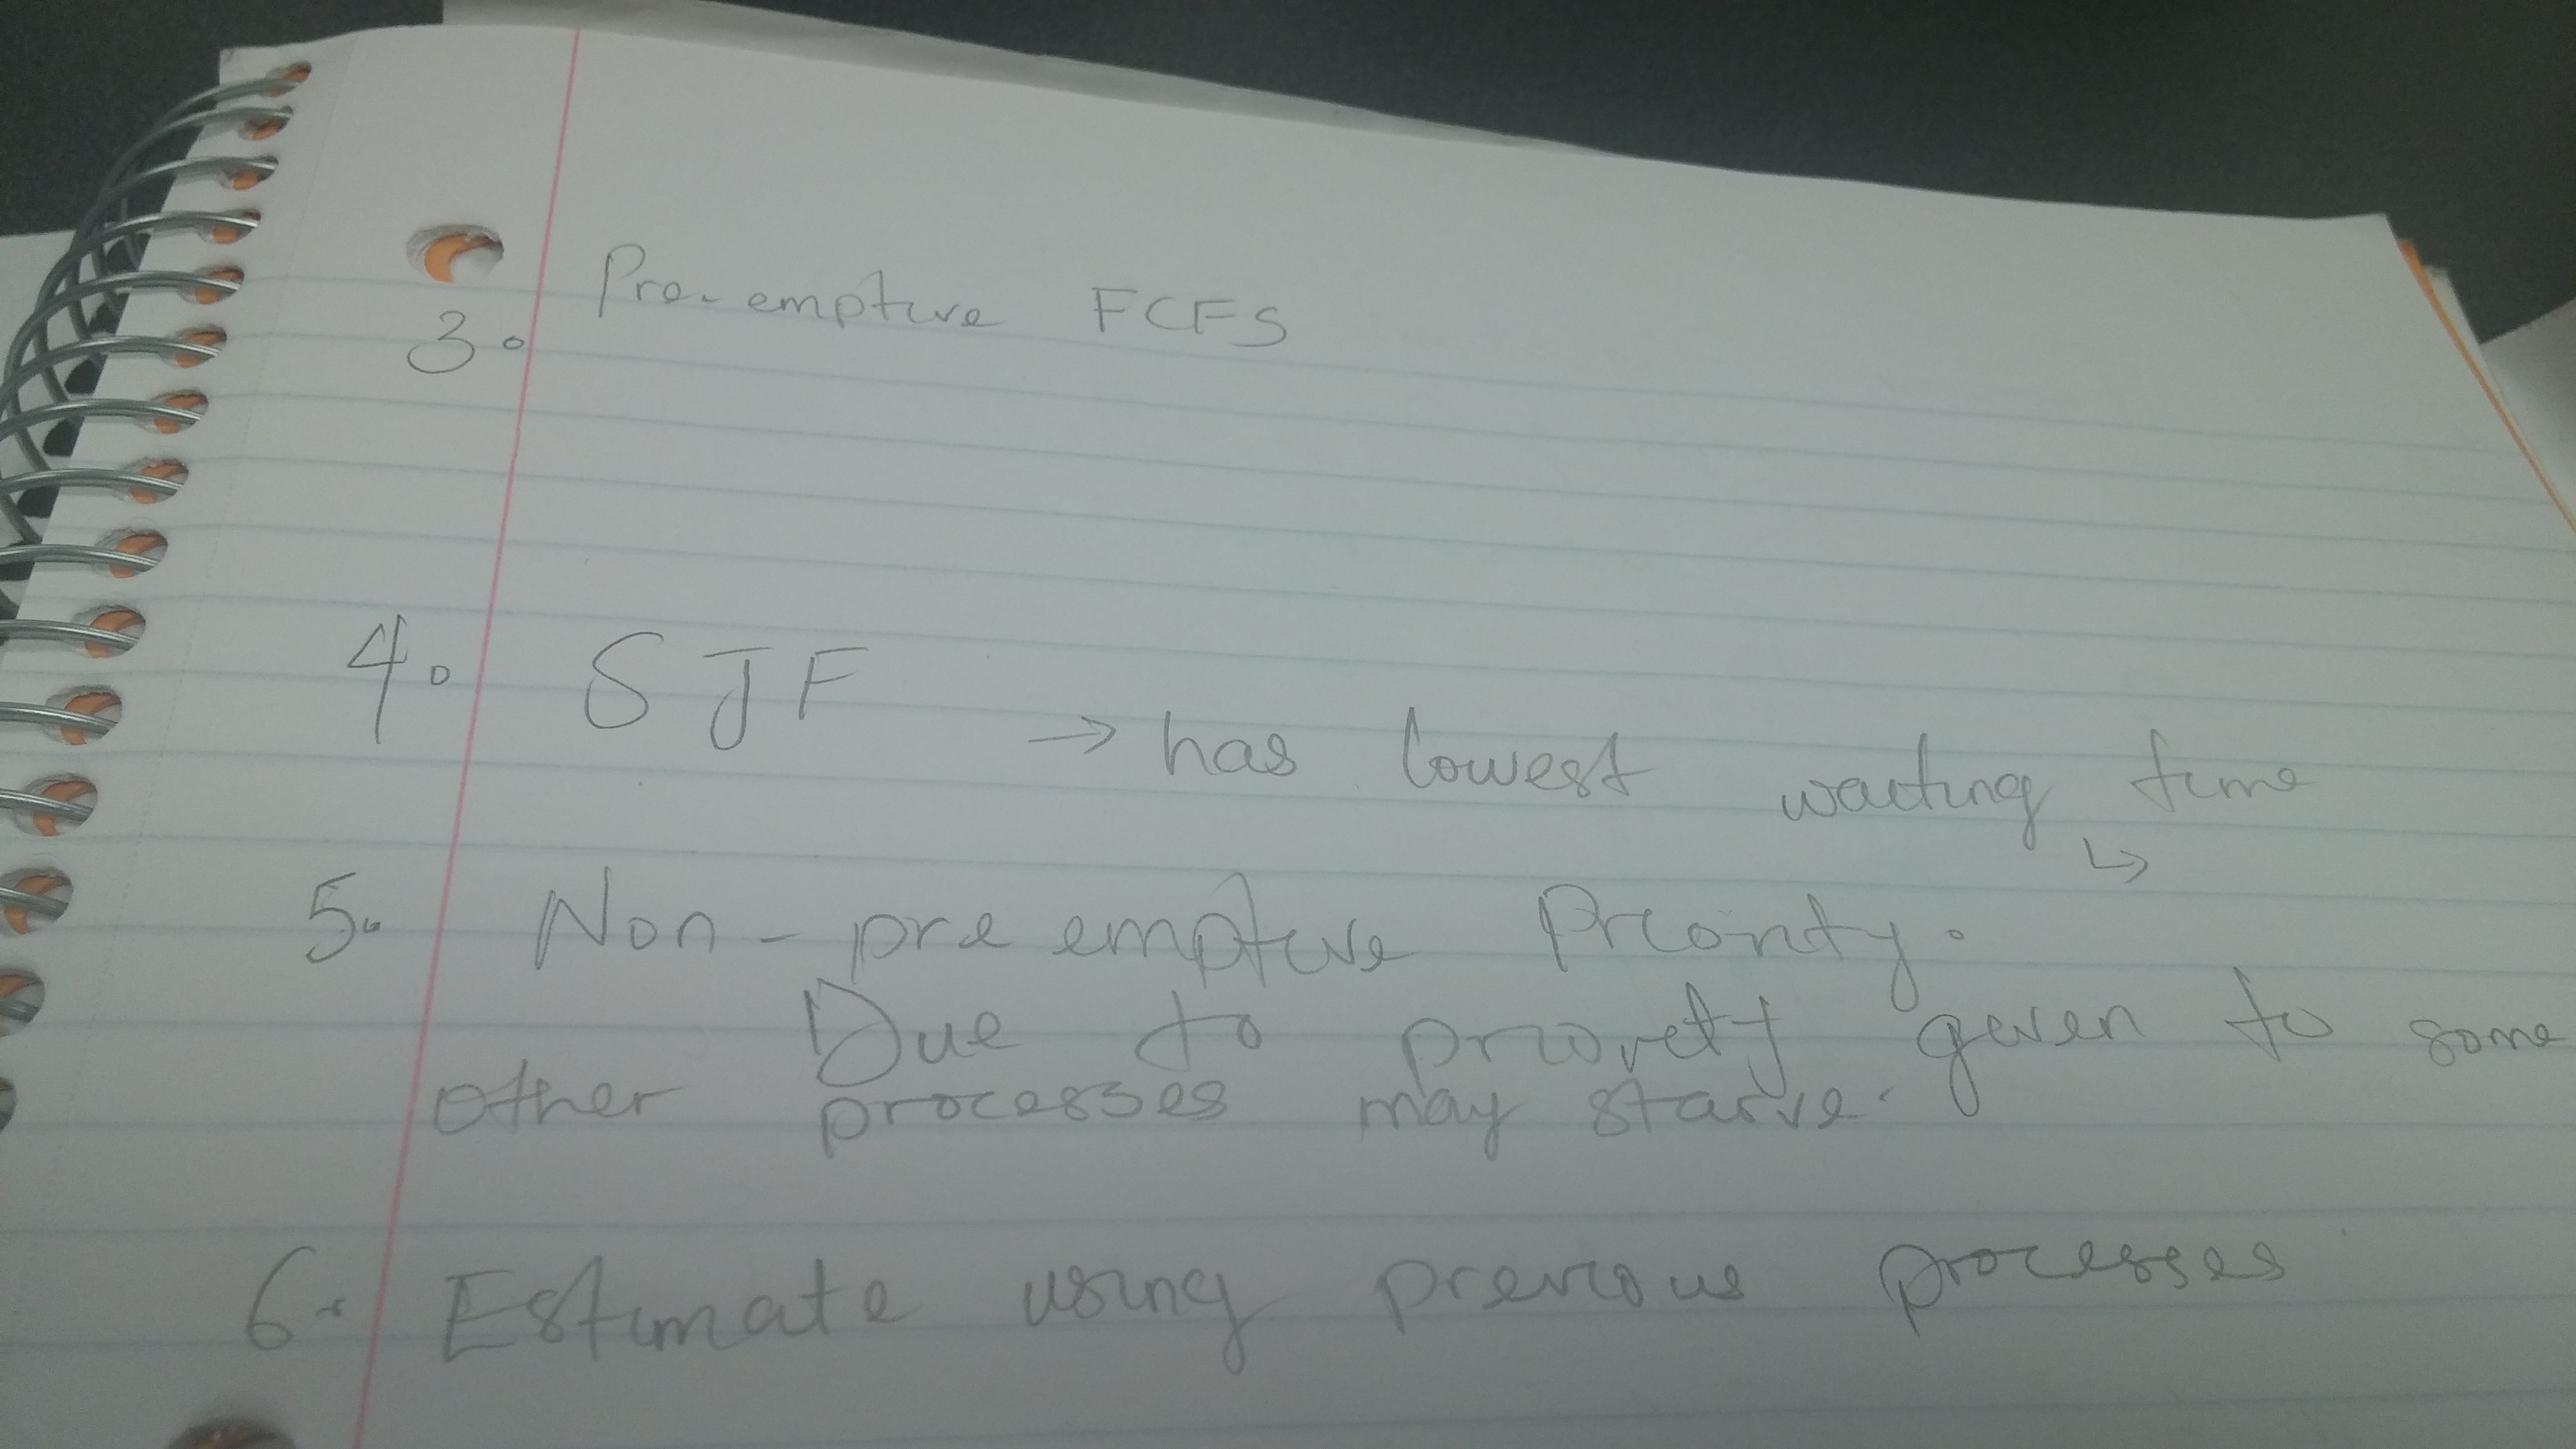 3. Pre-emptive FCFS
4. SJF → has lowest waiting time
↳
5. Non-pre emptive Priority.
Due to priority given to some
other processes may starve.
6. Estimate using previous processes